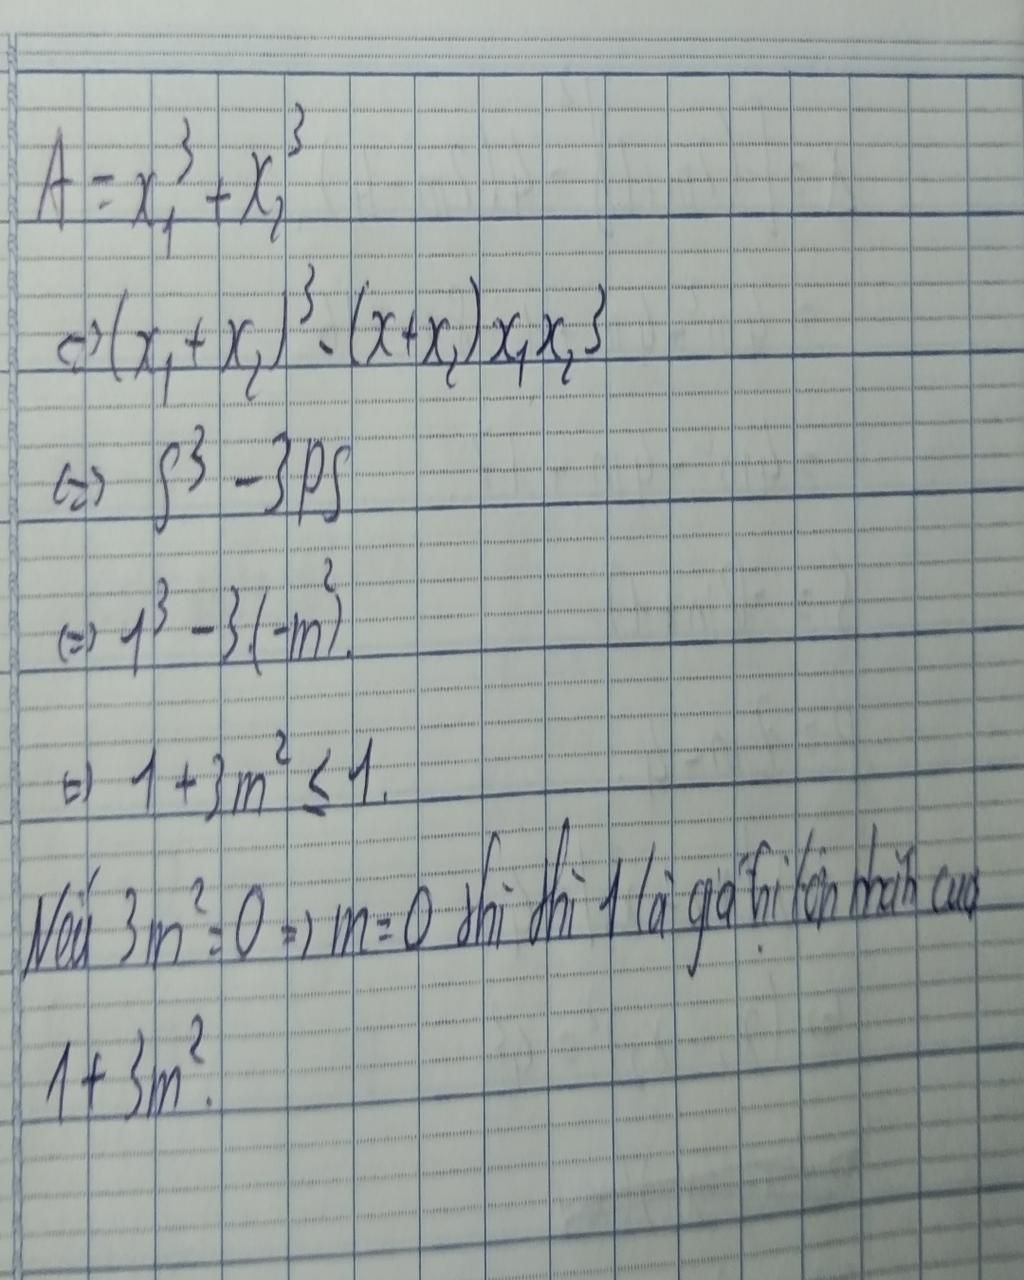 A = x₁³ + x₂³
<=> (x₁ + x₂)³ - (x + x₂) x₁ x₂ 3
<=> S³ - 3PS
<=> 1³ - 3.(-m²).
=> 1 + 3m² ≤ 1.
Nếu 3m² = 0 => m = 0 thì thì 1 là giá trị lớn nhất của
1 + 3m².